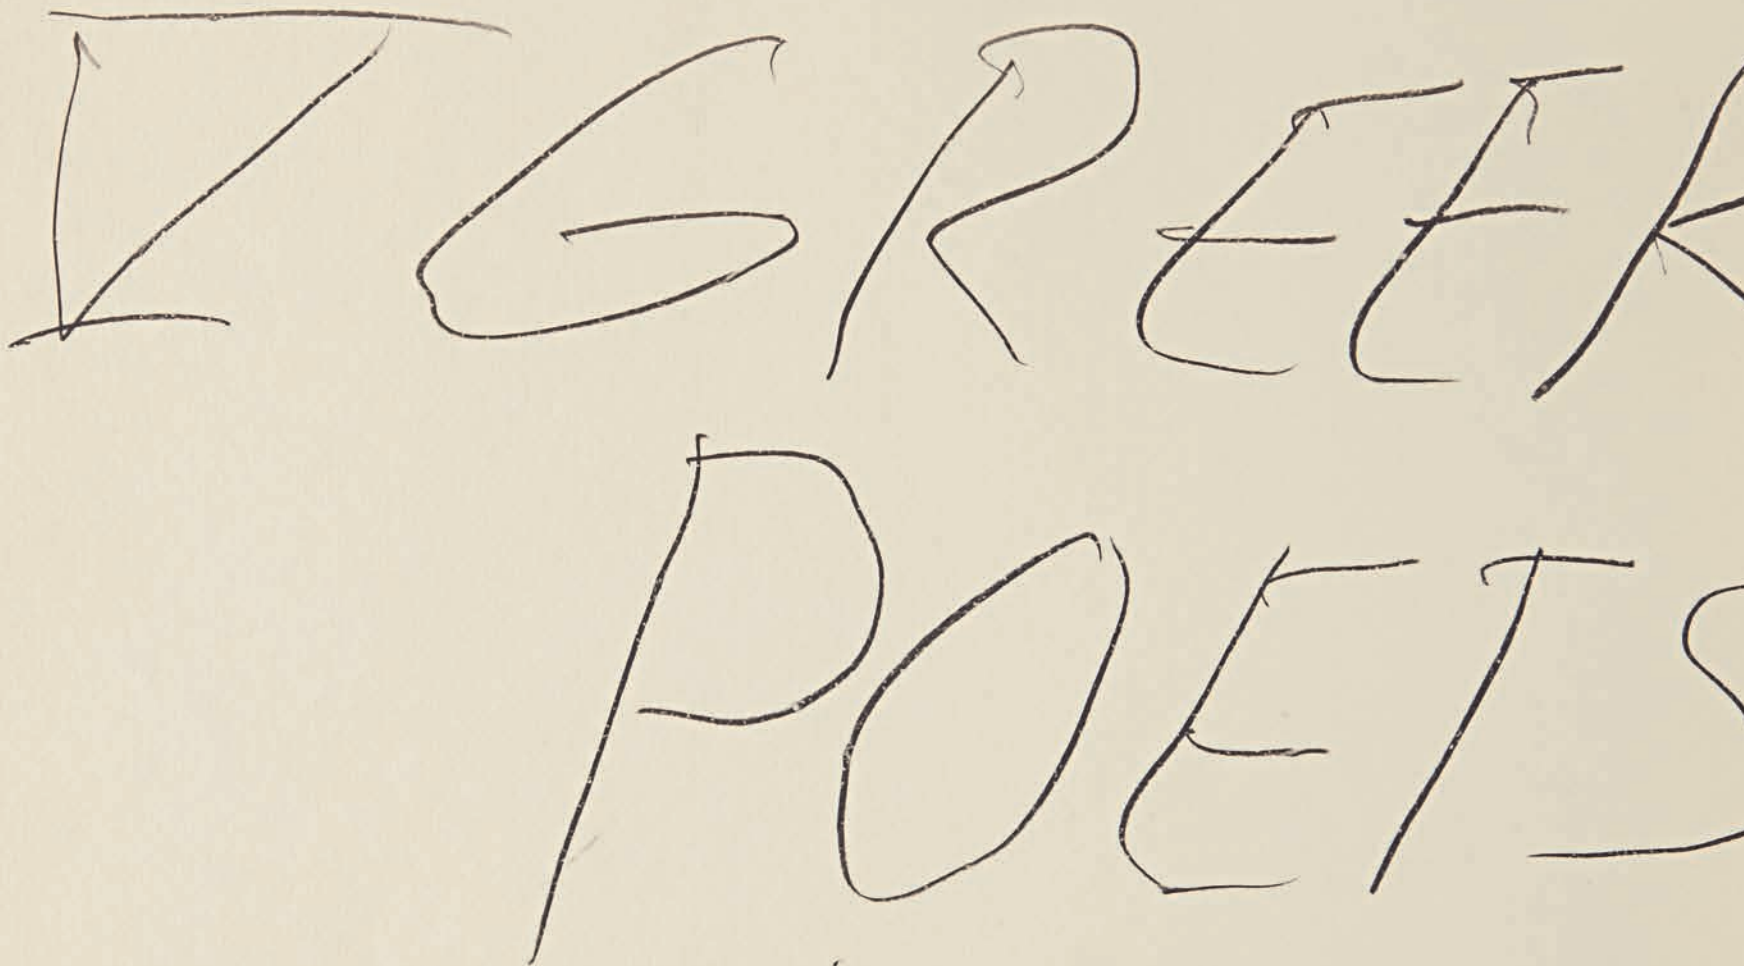 V GREEK
POETS